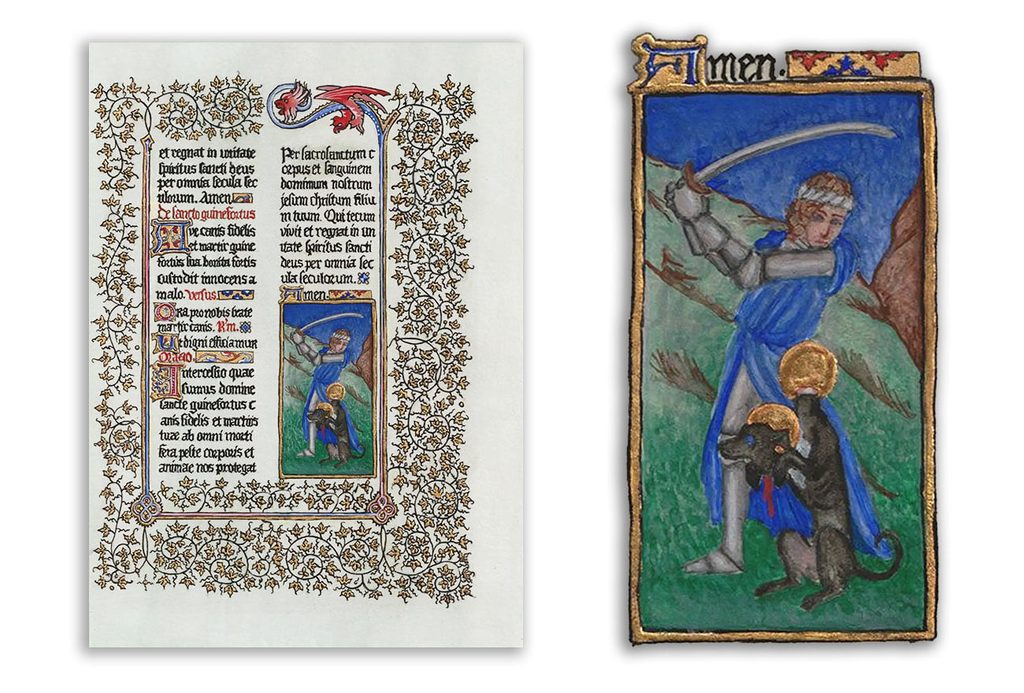 et regnat in unitate
spiritus sancti deus
per omnia secula sec
ulorum. Amen
de sancto guinefortus
Ave canis fidelis
et martir guine
fortus sua bonita fortis
custodit innocens a
malo. versus
Ora pro nobis beate
martir canis. Rm.
Ut digni efficiamur
Oratio
Intercessio quae
sumus domine
sancte guinefortus c
anis fidelis et martiris
tuae ab omni morti
fera peste corporis et
animae nos protegat
Per sacrosanctum c
orpus et sanguinem
dominum nostrum
jesum christum filiu
m tuum. Qui tecum
vivit et regnat in un
itate spiritus sancti
deus per omnia sec
ula seculorum.
Amen.
Amen.